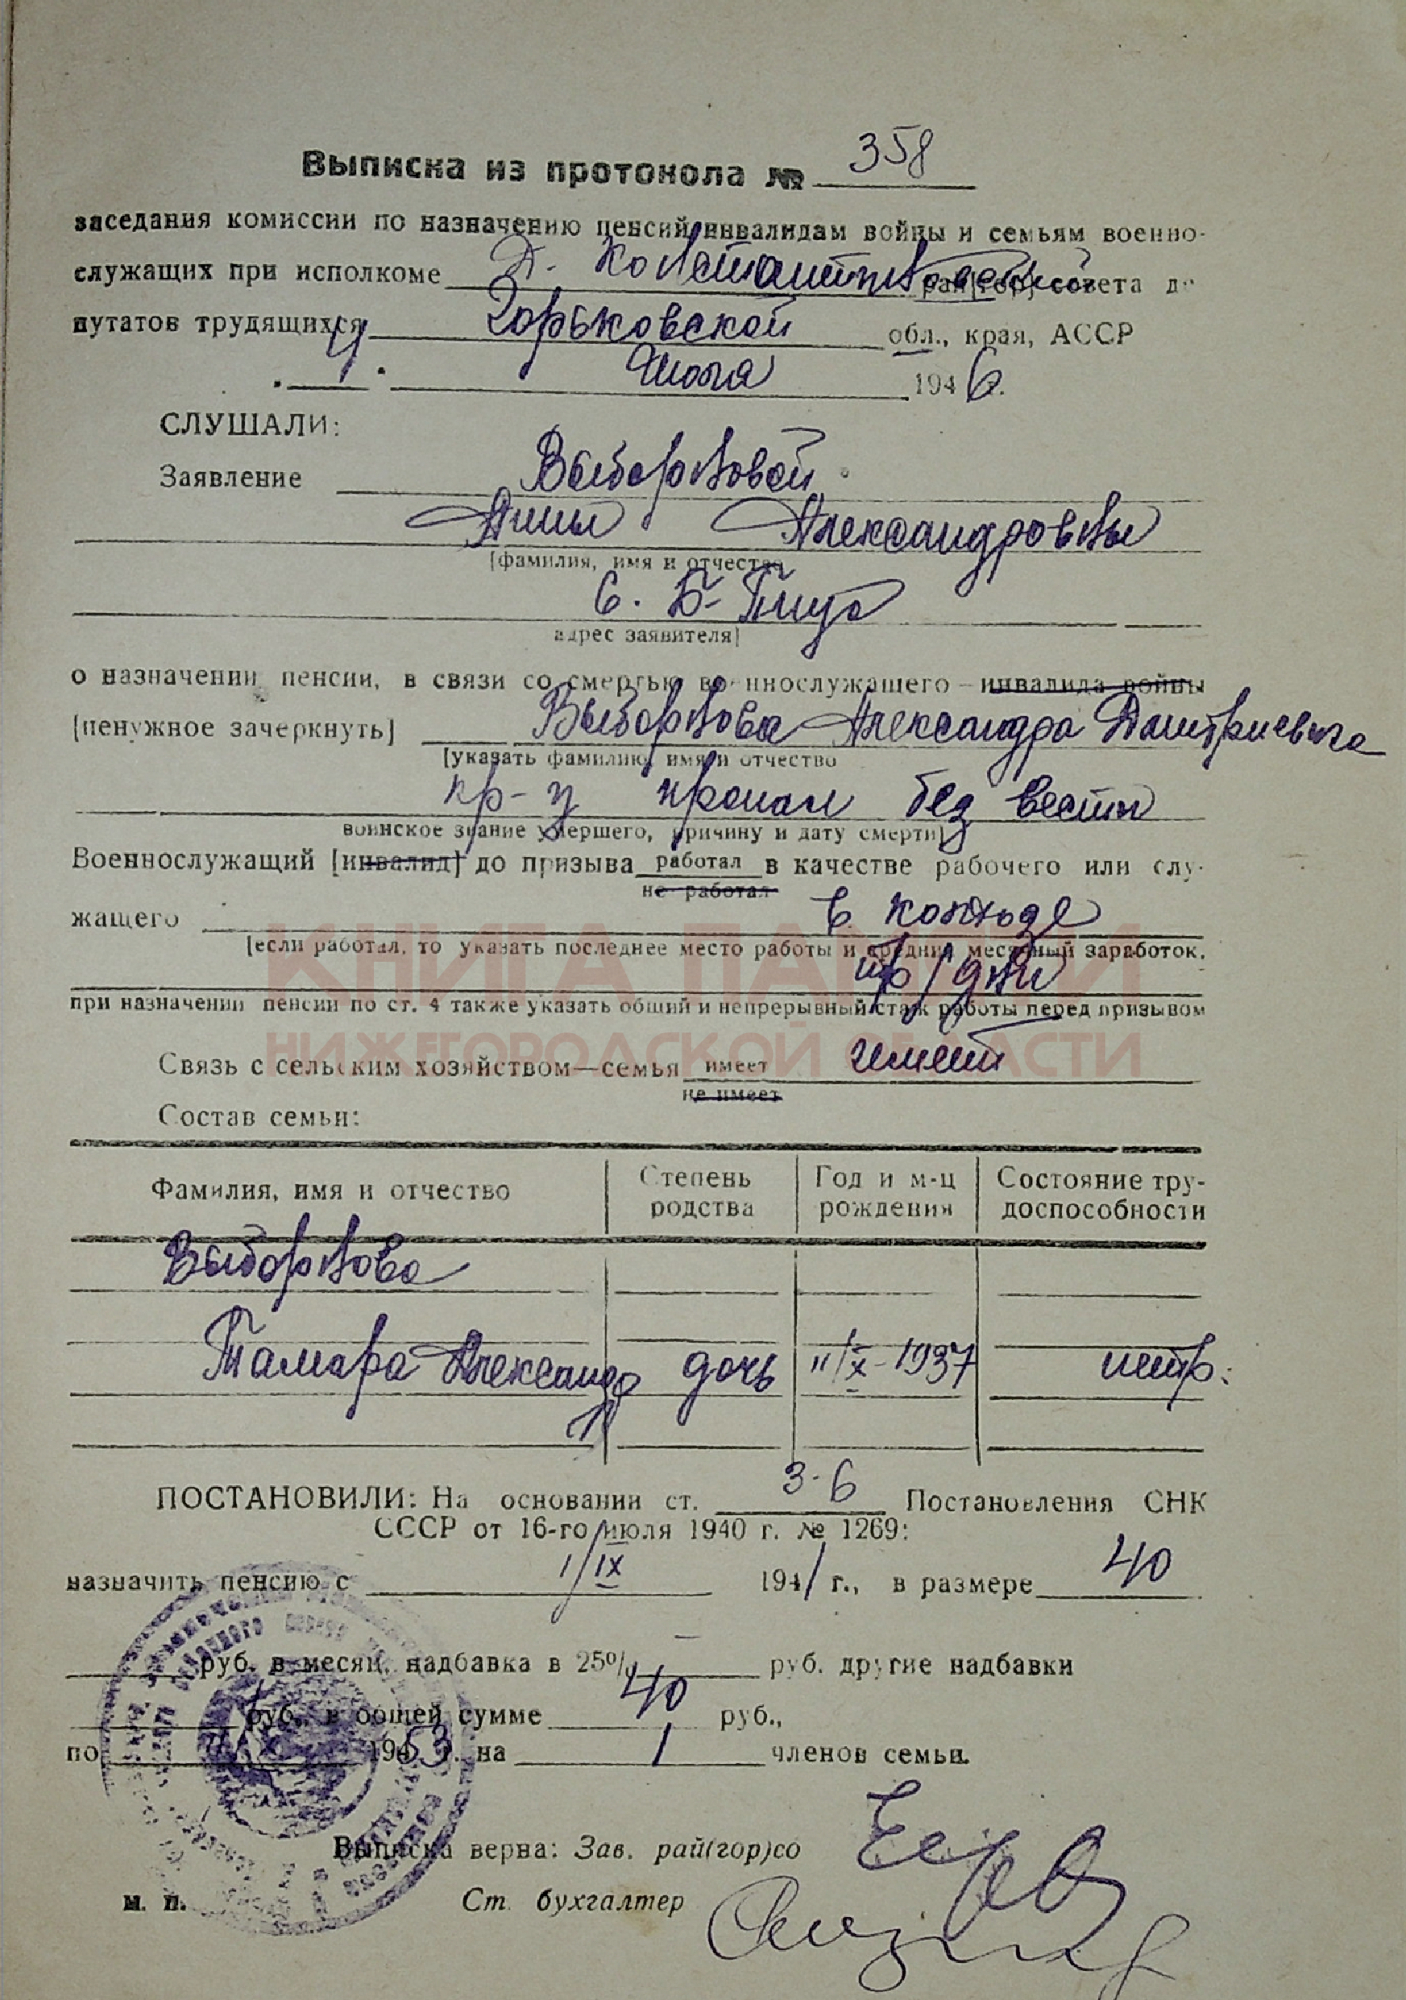 Выписка из протокола № 358
заседания комиссии по назначению пенсий инвалидам войны и семьям военно-
служащих при исполкоме Д. Константиновской рай(гор) совета де
путатов трудящихся Горьковской обл., края, АССР
"4" Июля 1946.
СЛУШАЛИ:
Заявление Выборновой
Анны Александровны
[фамилия, имя и отчество
С. Б-Пица
адрес заявителя]
о назначении пенсии, в связи со смертью военнослужащего — инвалида войны
[ненужное зачеркнуть] Выборнова Александра Дмитриевича
[указать фамилию, имя и отчество
кр-ц пропал без вести
воинское звание умершего, причину и дату смерти]
Военнослужащий [инвалид] до призыва работал в качестве рабочего или слу-
не работал
жащего в колхозе
[если работал, то указать последнее место работы и средний месячный заработок,
тр/дни
при назначении пенсии по ст. 4 также указать общий и непрерывный стаж работы перед призывом
КНИГА ПАМЯТИ
НИЖЕГОРОДСКОЙ ОБЛАСТИ
Связь с сельским хозяйством—семья имеет имеет
не имеет
Состав семьи:
Фамилия, имя и отчество Степень родства Год и м-ц рождения Состояние тру-доспособности
Выборнова
Тамара Александр дочь 11/X-1937 нетр.
ПОСТАНОВИЛИ: На основании ст. 3-6 Постановления СНК
СССР от 16-го июля 1940 г. № 1269:
назначить пенсию с 1/IX 1941 г., в размере 40
руб. в месяц, надбавка в 25% — руб. другие надбавки
руб., в общей сумме 40 руб.,
по 1953 г. на 1 членов семьи.
Выписка верна: Зав. рай(гор)со
м. п. Ст. бухгалтер